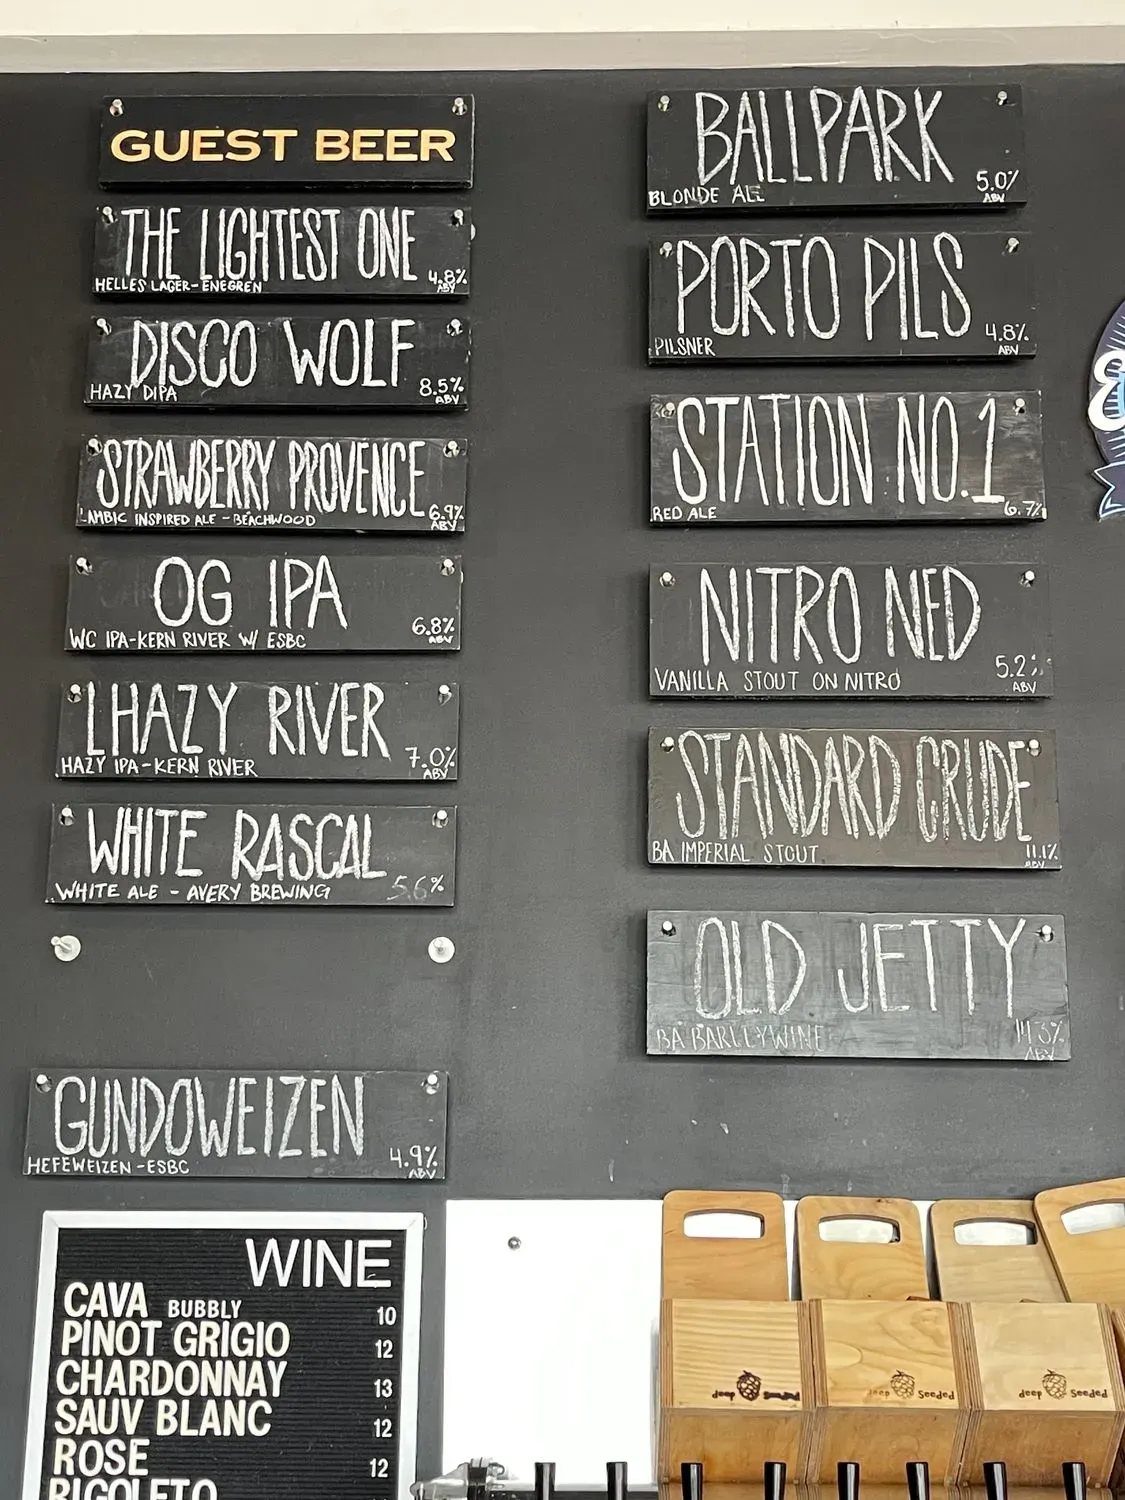 GUEST BEER
THE LIGHTEST ONE
HELLES LAGER-ENEGREN 4.8% ABV
DISCO WOLF
HAZY DIPA 8.5% ABV
STRAWBERRY PROVENCE
LAMBIC INSPIRED ALE - BEACHWOOD 6.9% ABV
OG IPA
WC IPA-KERN RIVER W/ ESBC 6.8% ABV
LHAZY RIVER
HAZY IPA-KERN RIVER 7.0% ABV
WHITE RASCAL
WHITE ALE - AVERY BREWING 5.6%
GUNDOWEIZEN
HEFEWEIZEN-ESBC 4.9% ABV
BALLPARK
BLONDE ALE 5.0% ABV
PORTO PILS
PILSNER 4.8% ABV
STATION NO.1
RED ALE 6.7%
NITRO NED
VANILLA STOUT ON NITRO 5.2% ABV
STANDARD CRUDE
BA IMPERIAL STOUT 11.1% ABV
OLD JETTY
BA BARLEYWINE ABV
WINE
CAVA BUBBLY 10
PINOT GRIGIO 12
CHARDONNAY 13
SAUV BLANC 12
ROSE 12
RIGOLETO
deep
deep Seeded
deep Seeded